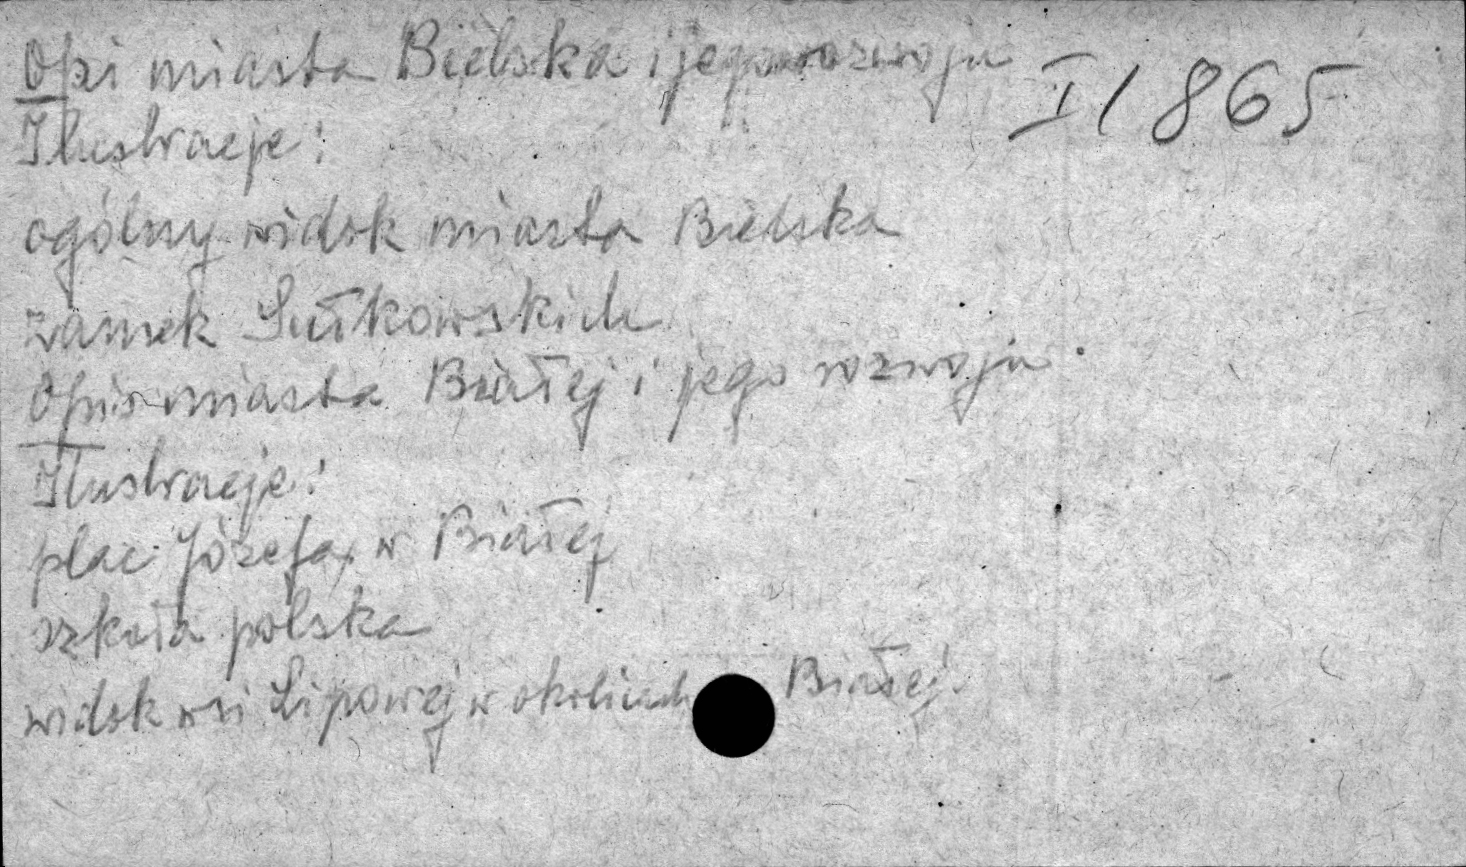 Opi miasta Bielska i jego rozwoju
I 1865
Ilustracje:
ogólny widok miasta Bielska
zamek Sułkowskich
Opis miasta Białej i jego rozwoju
Ilustracje:
plac Józefa w Białej
szkoła polska
widok wsi Lipowej w okolicach Białej